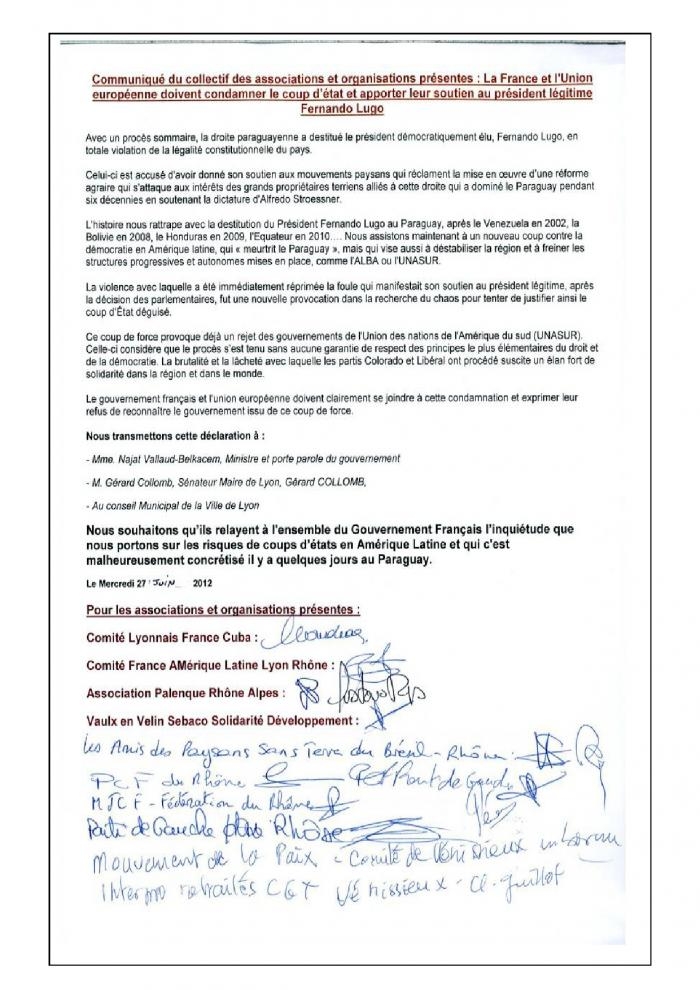 Communiqué du collectif des associations et organisations présentes : La France et l'Union
européenne doivent condamner le coup d'état et apporter leur soutien au président légitime
Fernando Lugo
Avec un procès sommaire, la droite paraguayenne a destitué le président démocratiquement élu, Fernando Lugo, en
totale violation de la légalité constitutionnelle du pays.
Celui-ci est accusé d'avoir donné son soutien aux mouvements paysans qui réclament la mise en œuvre d'une réforme
agraire qui s'attaque aux intérêts des grands propriétaires terriens alliés à cette droite qui a dominé le Paraguay pendant
six décennies en soutenant la dictature d'Alfredo Stroessner.
L'histoire nous rattrape avec la destitution du Président Fernando Lugo au Paraguay, après le Venezuela en 2002, la
Bolivie en 2008, le Honduras en 2009, l'Equateur en 2010.... Nous assistons maintenant à un nouveau coup contre la
démocratie en Amérique latine, qui « meurtrit le Paraguay », mais qui vise aussi à déstabiliser la région et à freiner les
structures progressives et autonomes mises en place, comme l'ALBA ou l'UNASUR.
La violence avec laquelle a été immédiatement réprimée la foule qui manifestait son soutien au président légitime, après
la décision des parlementaires, fut une nouvelle provocation dans la recherche du chaos pour tenter de justifier ainsi le
coup d'État déguisé.
Ce coup de force provoque déjà un rejet des gouvernements de l'Union des nations de l'Amérique du sud (UNASUR).
Celle-ci considère que le procès s'est tenu sans aucune garantie de respect des principes le plus élémentaires du droit et
de la démocratie. La brutalité et la lâcheté avec laquelle les partis Colorado et Libéral ont procédé suscite un élan fort de
solidarité dans la région et dans le monde.
Le gouvernement français et l'union européenne doivent clairement se joindre à cette condamnation et exprimer leur
refus de reconnaître le gouvernement issu de ce coup de force.
Nous transmettons cette déclaration à :
- Mme. Najat Vallaud-Belkacem, Ministre et porte parole du gouvernement
- M. Gérard Collomb, Sénateur Maire de Lyon, Gérard COLLOMB,
- Au conseil Municipal de la Ville de Lyon
Nous souhaitons qu'ils relayent à l'ensemble du Gouvernement Français l'inquiétude que
nous portons sur les risques de coups d'états en Amérique Latine et qui c'est
malheureusement concrétisé il y a quelques jours au Paraguay.
Le Mercredi 27 Juin 2012
Pour les associations et organisations présentes :
Comité Lyonnais France Cuba :
Comité France AMérique Latine Lyon Rhône :
Association Palenque Rhône Alpes :
Vaulx en Velin Sebaco Solidarité Développement :
Les Amis des Paysans Sans Terra du Brésil - Rhône :
PCF du Rhône
MJCF - Fédération du Rhône
Parti de Gauche Rhône
Mouvement de la Paix - Comité de Vénissieux
Interpro retraités CGT Vénissieux - Cl. Guillot